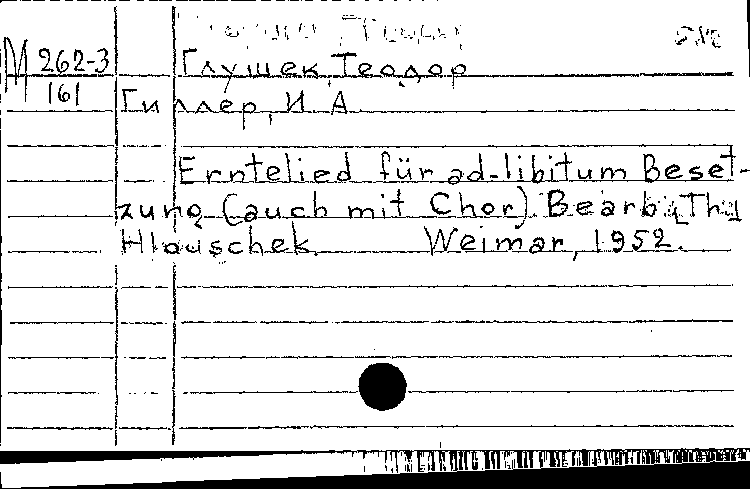 М 262-3
161
Глушек, Теодор
Гиллер, И. А.
Erntelied für ad-libitum Beset-
zung (auch mit Chor). Bearb.
Hlouschek. Weimar, 1952.